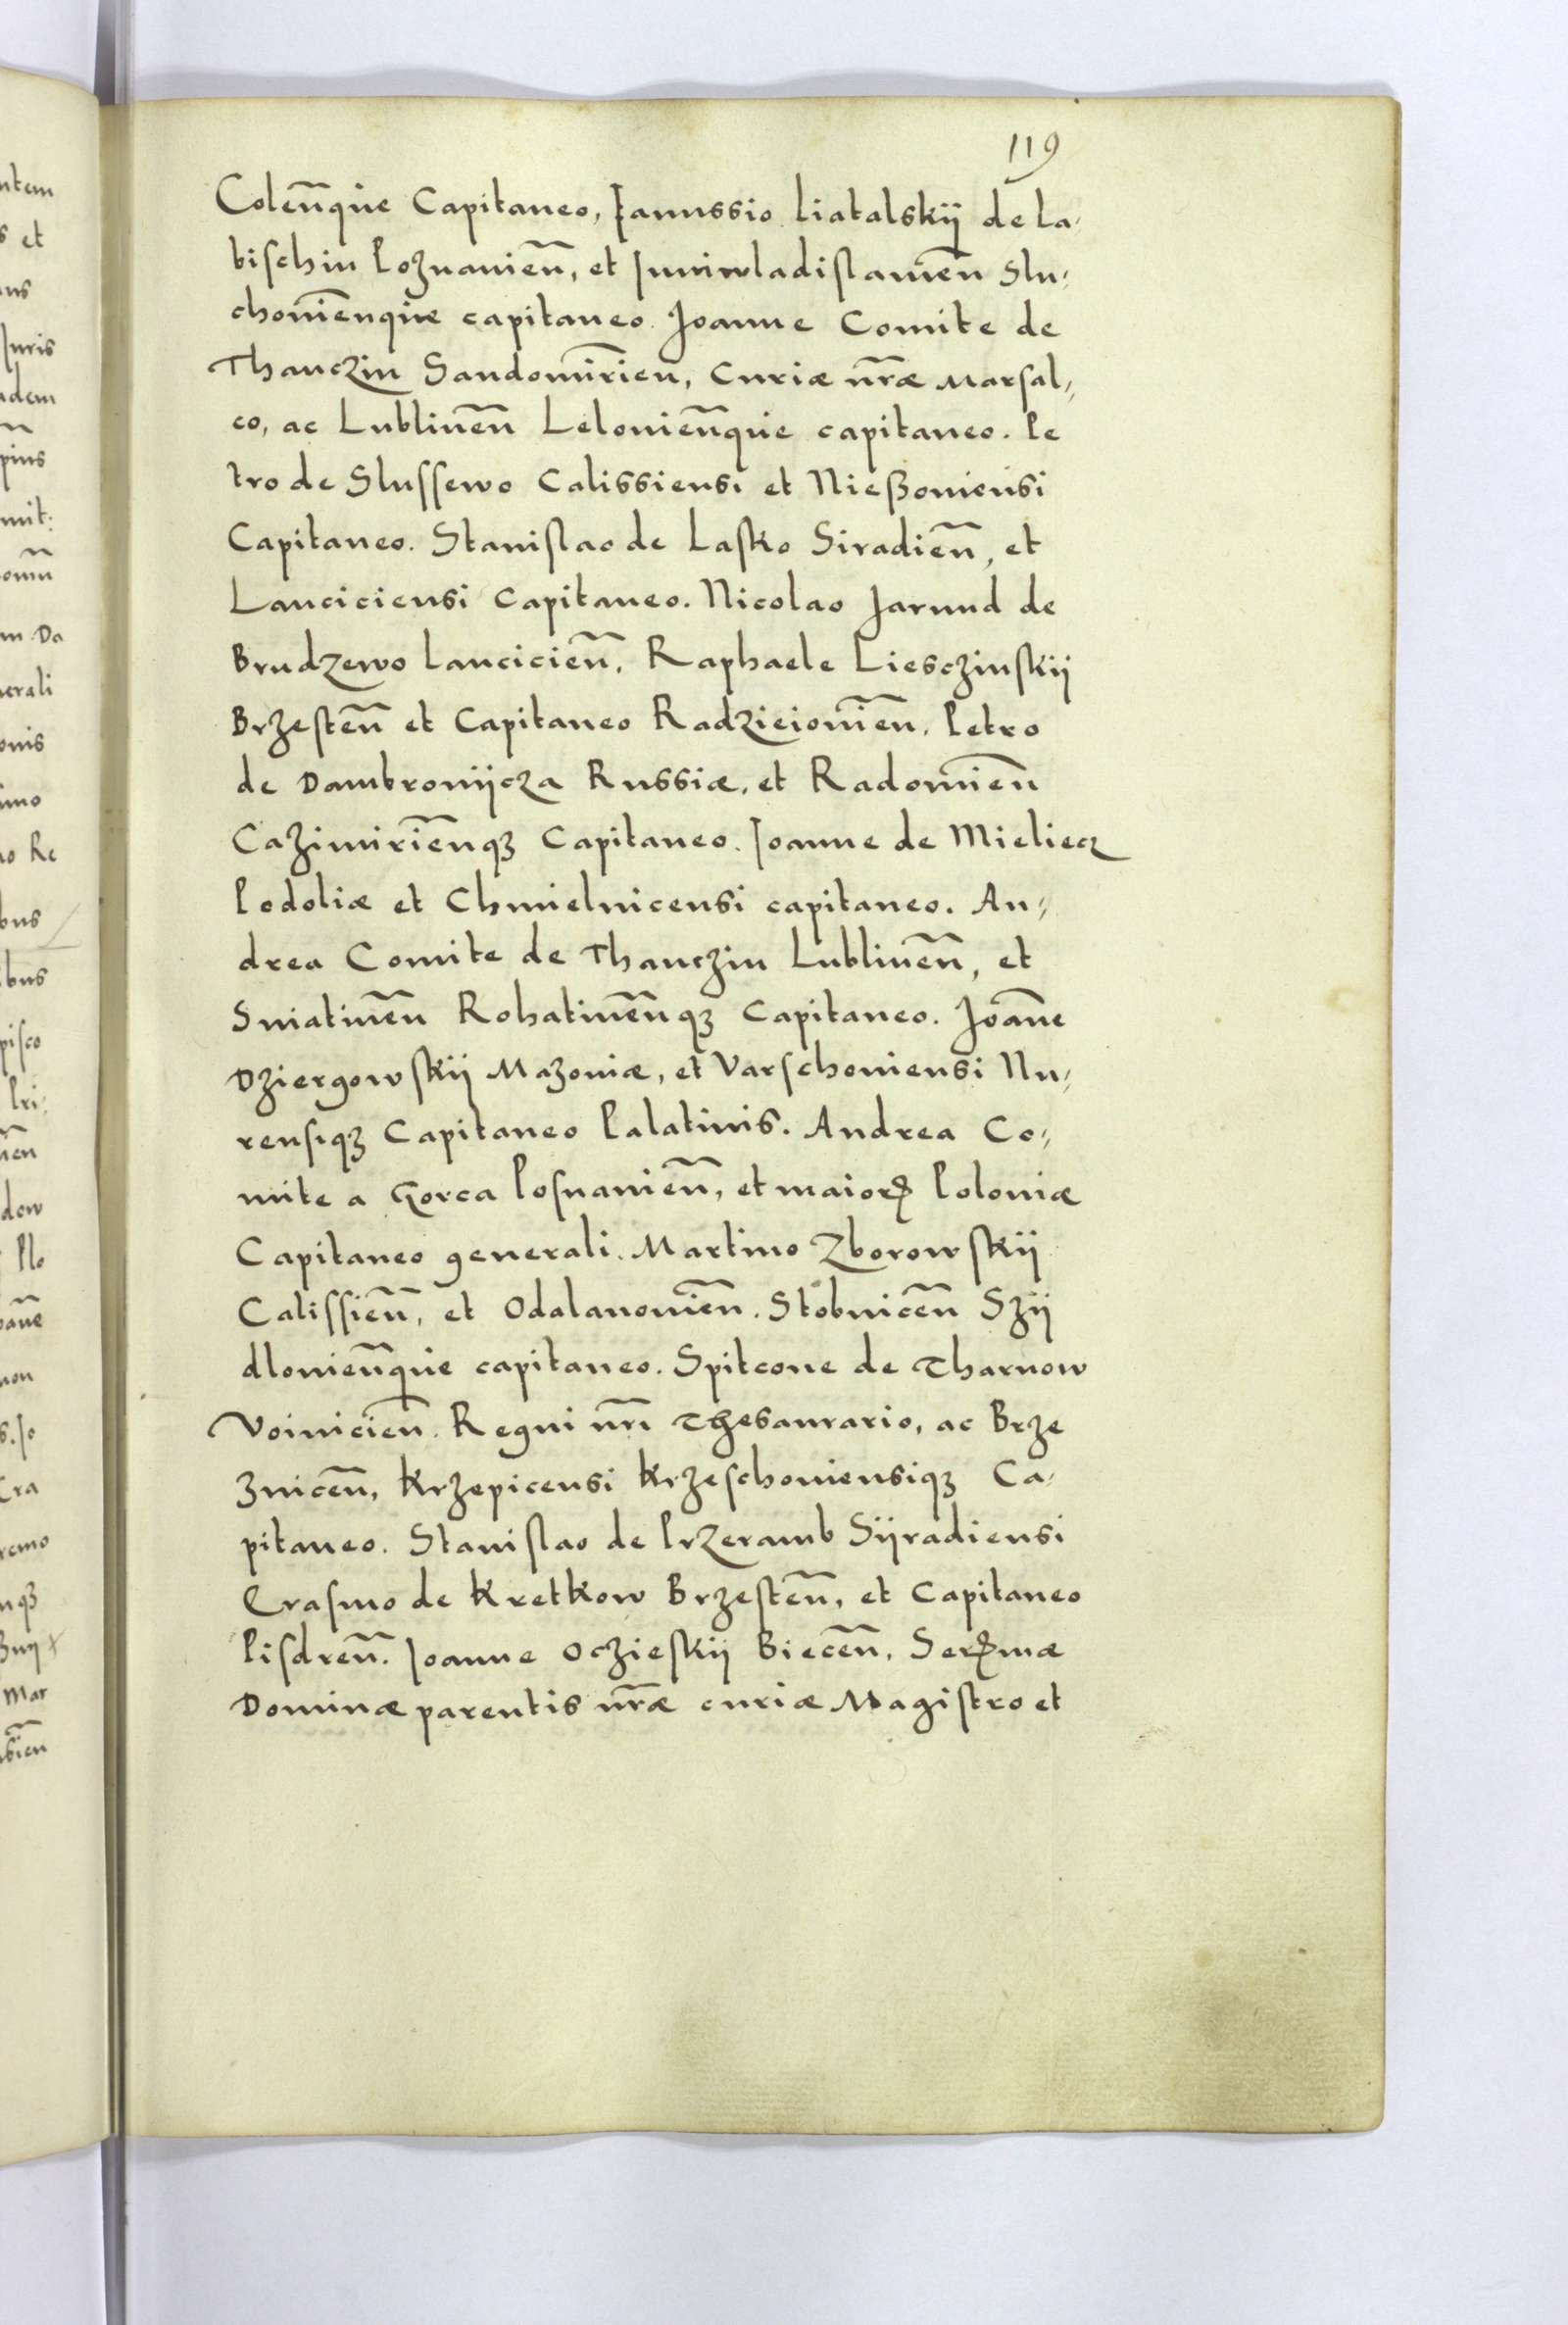 119
Colen̄que Capitaneo, Ianussio Liatalskij de La-
bischin Poznanien̄, et Iuniwladislauien̄ Slu-
chouien̄que capitaneo. Joanne Comite de
Thanczin Sandomirien̄, Curiæ nr̄æ Marsal-
co, ac Lublinen̄ Lelouien̄que capitaneo. Pe
tro de Slussewo Calissiensi et Nießouiensi
Capitaneo. Stanislao de Lasko Siradien̄, et
Lanciciensi Capitaneo. Nicolao Jarund de
Brudzewo Lancicien̄, Raphaele Liesczinskij
Brzesten̄ et Capitaneo Radzieiouien̄, Petro
de Dambrouijcza Russiæ, et Radomien̄
Cazimirien̄qꝫ Capitaneo. Ioanne de Mieliecz
Podoliæ et Chmielnicensi capitaneo. An-
drea Comite de Thanczin Lublinen̄, et
Sniatinen̄ Rohatinen̄qꝫ Capitaneo. Joān̄e
Dziergowskij Mazouiæ, et Varschouiensi Nu-
rensiqꝫ Capitaneo Palatinis. Andrea Co-
mite a Gorca Posnanien̄, et maioꝝ Poloniæ
Capitaneo generali. Martino Zborowskij
Calissien̄, et Odalanouien̄. Stobnicen̄ Szij
dlouien̄que capitaneo. Spitcone de Tharnow
Voinicien̄. Regni nr̄i Thesaurario, ac Brze
znicen̄, Krzepicensi Krzeschouiensiqꝫ Ca-
pitaneo. Stanislao de Przeramb Sijradiensi
Erasmo de Kretkow Brzesten̄, et Capitaneo
Pisdren̄. Joanne Oczieskij Biecen̄, Serꝝmæ
Dominæ parentis nr̄æ curiæ Magistro et